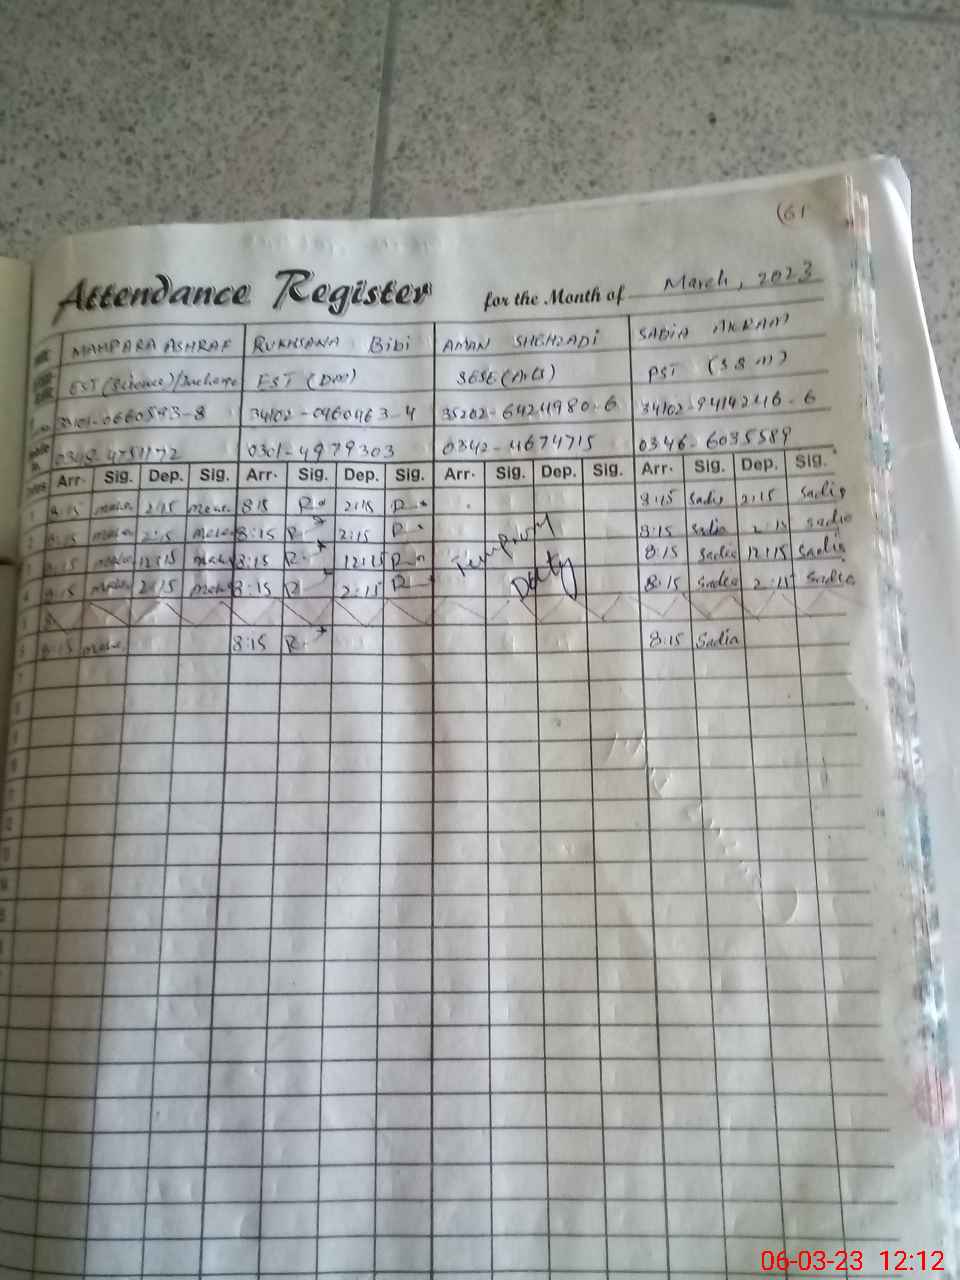 (61
Attendance Register for the Month of March, 2023
MAHPARA ASHRAF RUKHSANA Bibi AMAN SHEHZADI SADIA AKRAM
EST (Science)/Incharge EST (DM) SESE (Arts) PST
0660593-8 34102-0460463-4 35202-6424980-6 34102-9414246-6
0301-4979303 0342-4674715 0346-6035589
Arr. Sig. Dep. Sig. Arr. Sig. Dep. Sig. Arr. Sig. Dep. Sig. Arr. Sig. Dep. Sig.
1 8:15 2:15 8:15 R 2:15 R 8:15 Sadia 2:15 Sadia
2 8:15 2:15 8:15 R 2:15 R 8:15 Sadia 2:15 Sadia
8:15 12:15 8:15 R 12:15 R 8:15 Sadia 12:15 Sadia
4 8:15 2:15 8:15 R 2:15 R Duty 8:15 Sadia 2:15 Sadia
8:15 8:15 R 8:15 Sadia
7
06-03-23 12:12